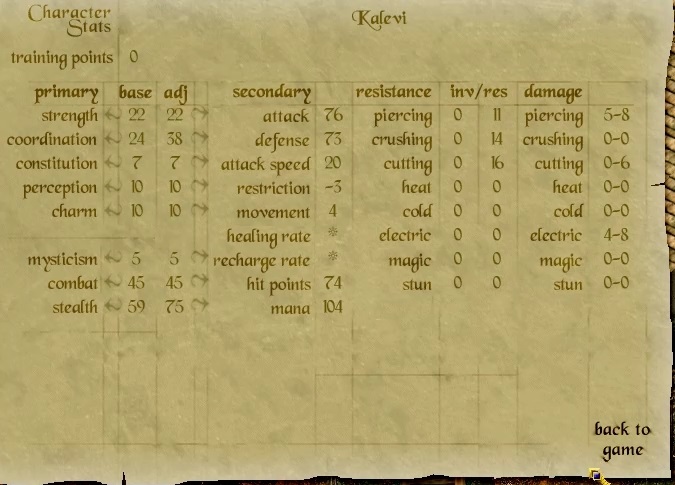 Character Stats
Kalevi
training points 0
primary base adj secondary resistance inv/res damage
strength 22 22 attack 76 piercing 0 11 piercing 5-8
coordination 24 38 defense 73 crushing 0 14 crushing 0-0
constitution 7 7 attack speed 20 cutting 0 16 cutting 0-6
perception 10 10 restriction -3 heat 0 0 heat 0-0
charm 10 10 movement 4 cold 0 0 cold 0-0
healing rate * electric 0 0 electric 4-8
mysticism 5 5 recharge rate * magic 0 0 magic 0-0
combat 45 45 hit points 74 stun 0 0 stun 0-0
stealth 59 75 mana 104
back to
game